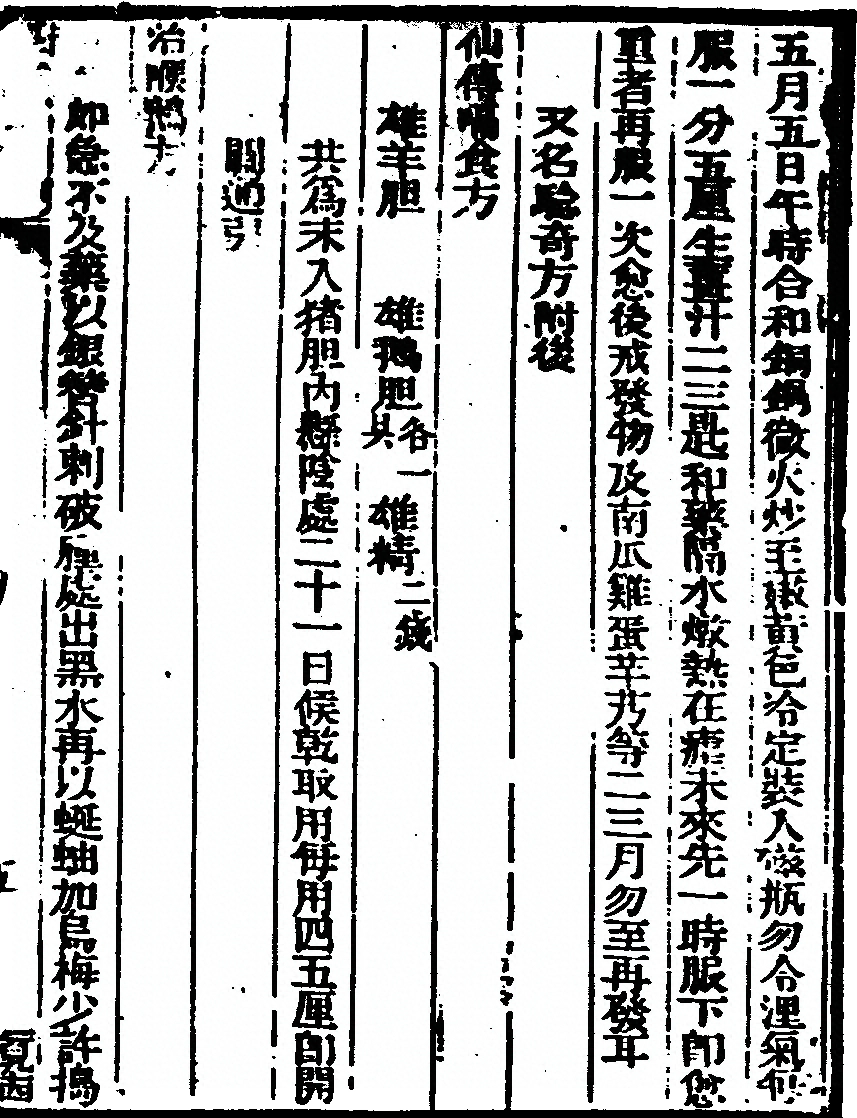 五月五日午時合和銅鍋微火炒至嫩黃色冷定裝入磁瓶勿令濕氣每
服一分五厘生薑汁二三匙和藥隔水燉熱在瘧未來先一時服下即愈
重者再服一次愈後戒發物及南瓜雞蛋芋艿等二三月勿至再發耳
又名驗奇方附後
仙傳噎食方
雄羊胆 雄鵝胆各一具 雄精二錢
共為末入猪胆內懸陰處二十一日候乾取用每用四五厘即開
關通引
治喉鵝方
如急不及藥以銀簪針刺破腫處出黑水再以蜒蚰加烏梅少許搗